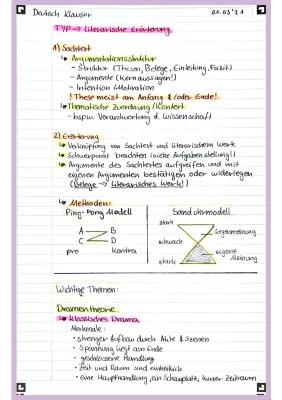 Deutsch Klausur 01.03'21
TYP → Literarische Erörterung
1) Sachtext
↳ Argumentationsstruktur
- Struktur (Thesen, Belege, Einleitung, Fazit)
- Argumente (Kernaussagen!)
- Intention / Motivation
! These meist am Anfang &/oder Ende!
↳ Thematische Zuordnung / Kontext
- bspw. Werdegang d. Wissenschaft
2) Erörterung
↳ Verknüpfung von Sachtext und literarischem Werk
↳ Schwerpunkt beachten (siehe Aufgabenstellung!)
↳ Argumente des Sachtextes aufgreifen und mit
eigenen Argumenten bestätigen oder widerlegen
(Belege → literarisches Werk!)
↳ Methoden:
Ping-Pong Modell Sanduhrmodell
stark
A B Gegenmeinung
C D schwach
eigene
Meinung
pro kontra stark
Wichtige Themen:
Dramentheorie
↳ klassisches Drama
Merkmale:
• strenger Aufbau durch Akte & Szenen
• Spannung liegt am Ende
• geschlossene Handlung
• Zeit und Raum sind einheitlich
• eine Haupthandlung, ein Schauplatz, kurzer Zeitraum